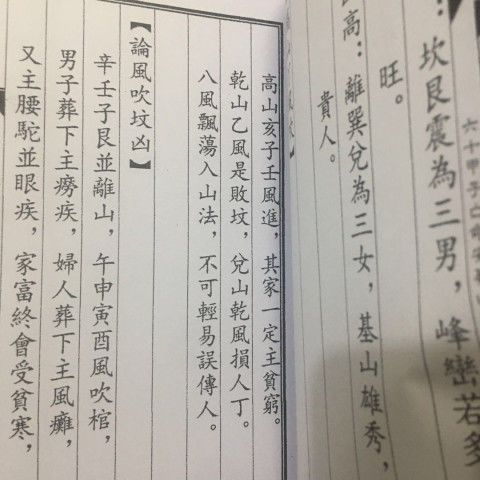 坎艮震為三男，峰巒若多
旺。
高：離巽兌為三女，基山雄秀，
貴人。
高山亥子壬風進，其家一定主貧窮。
乾山乙風是敗墳，兌山乾風損人丁。
八風飄蕩入山法，不可輕易誤傳人。
【論風吹墳凶】
辛壬子艮並離山，午申寅酉風吹棺，
男子葬下主癆疾，婦人葬下主風癱，
又主腰駝並眼疾，家富終會受貧寒，